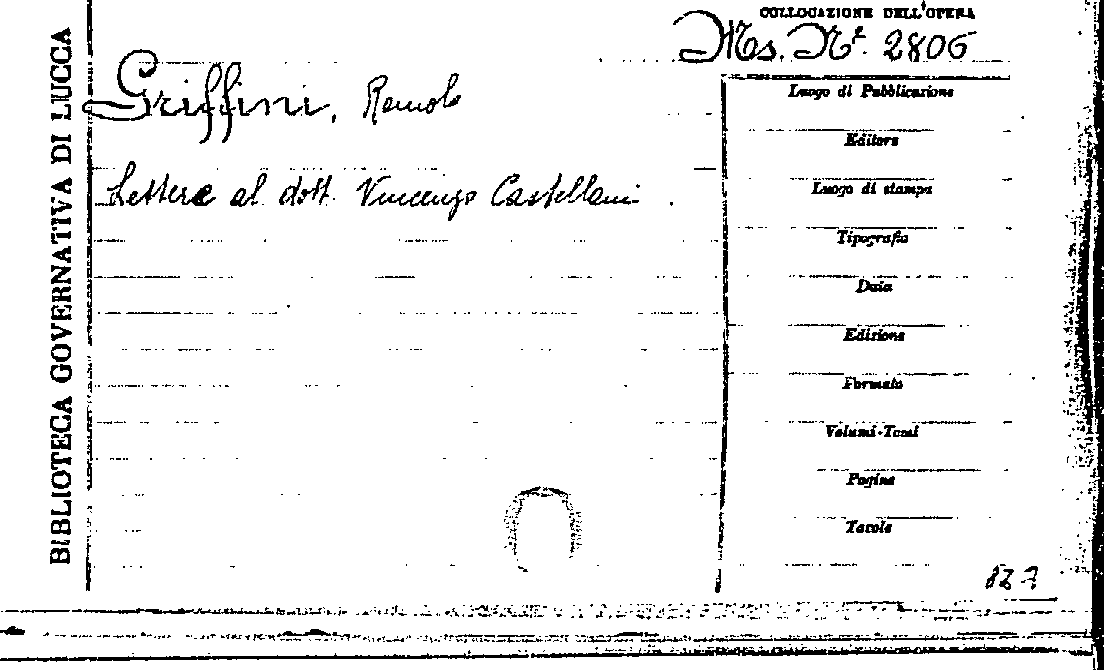 BIBLIOTECA GOVERNATIVA DI LUCCA
COLLOCAZIONE DELL'OPERA
Ms. Nr. 2806
Griffini, Romolo
Lettere al dott. Vincenzo Castellani.
Luogo di Pubblicazione
Editore
Luogo di stampa
Tipografia
Data
Edizione
Formato
Volumi-Tomi
Pagine
Tavole